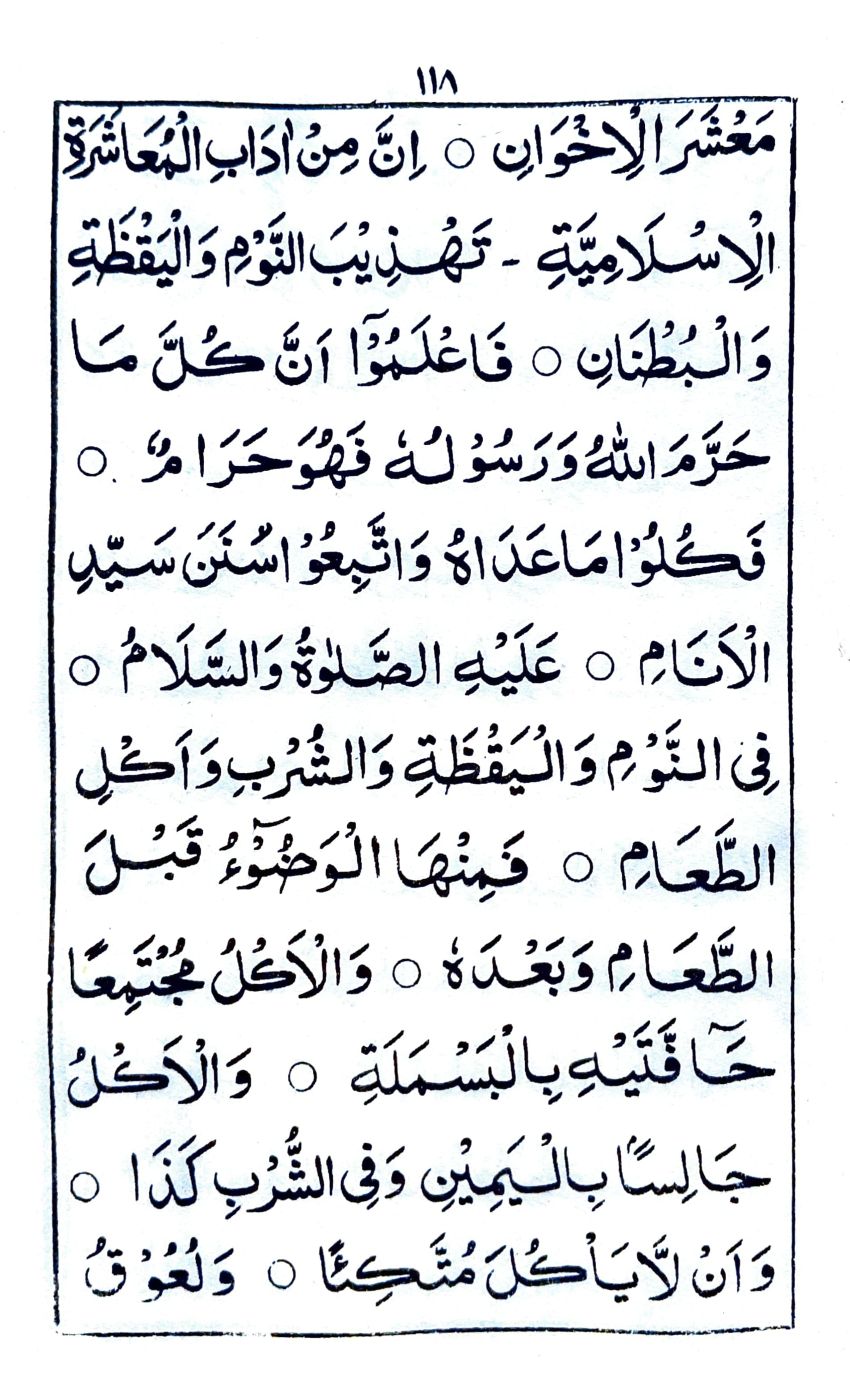 ١١٨
مَعْشَرَ الْاِخْوَانِ ○ اِنَّ مِنْ اٰدَابِ الْمُعَاشَرَةِ
الْاِسْلَامِيَّةِ - تَهْذِيْبَ النَّوْمِ وَالْيَقْظَةِ
وَالْبُطْنَانِ ○ فَاعْلَمُوْٓا اَنَّ كُلَّ مَا
حَرَّمَ اللّٰهُ وَرَسُوْلُهٗ فَهُوَ حَرَامٌ ○
فَكُلُوْا مَا عَدَاهُ وَاتَّبِعُوْا سُنَنَ سَيِّدِ
الْاَنَامِ ○ عَلَيْهِ الصَّلٰوةُ وَالسَّلَامُ ○
فِى النَّوْمِ وَالْيَقْظَةِ وَالشُّرْبِ وَاَكْلِ
الطَّعَامِ ○ فَمِنْهَا الْوَضُوْٓءُ قَبْلَ
الطَّعَامِ وَبَعْدَهٗ ○ وَالْاَكْلُ مُجْتَمِعًا
حَآفَّتَيْهِ بِالْبَسْمَلَةِ ○ وَالْاَكْلُ
جَالِسًا بِالْيَمِيْنِ وَفِى الشُّرْبِ كَذَا ○
وَاَنْ لَّا يَاْكُلَ مُتَّكِئًا ○ وَلُعُوْقُ